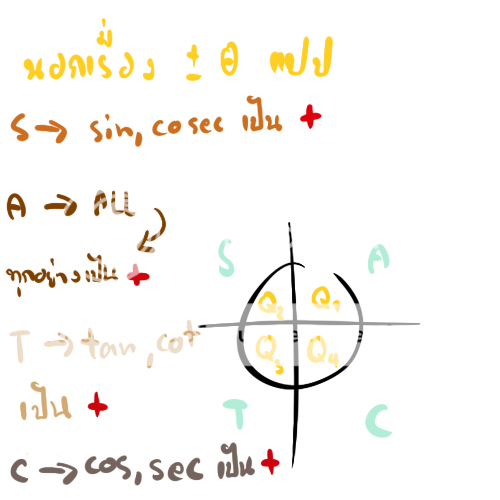 นอกเรื่อง ± θ แปป
S → sin, cosec เป็น +
A → ALL
ทุกอย่างเป็น +
T → tan, cot
เป็น +
C → cos, sec เป็น +
S A
Q₂ Q₁
Q₃ Q₄
T C